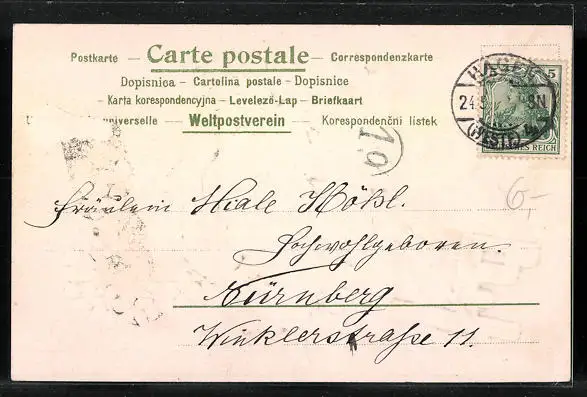 Postkarte – Carte postale – Correspondenzkarte
Dopisnica – Cartolina postale – Dopisnice
Karta korespondencyjna – Levelező-Lap – Briefkaart
universelle – Weltpostverein – Korespondenčni listek
HAGEN
5
24
9N
(WESTF)
REICH
10
Fräulein Male Hößl.
Hochwohlgeboren.
6,-
Nürnberg
Winklerstraße 11.